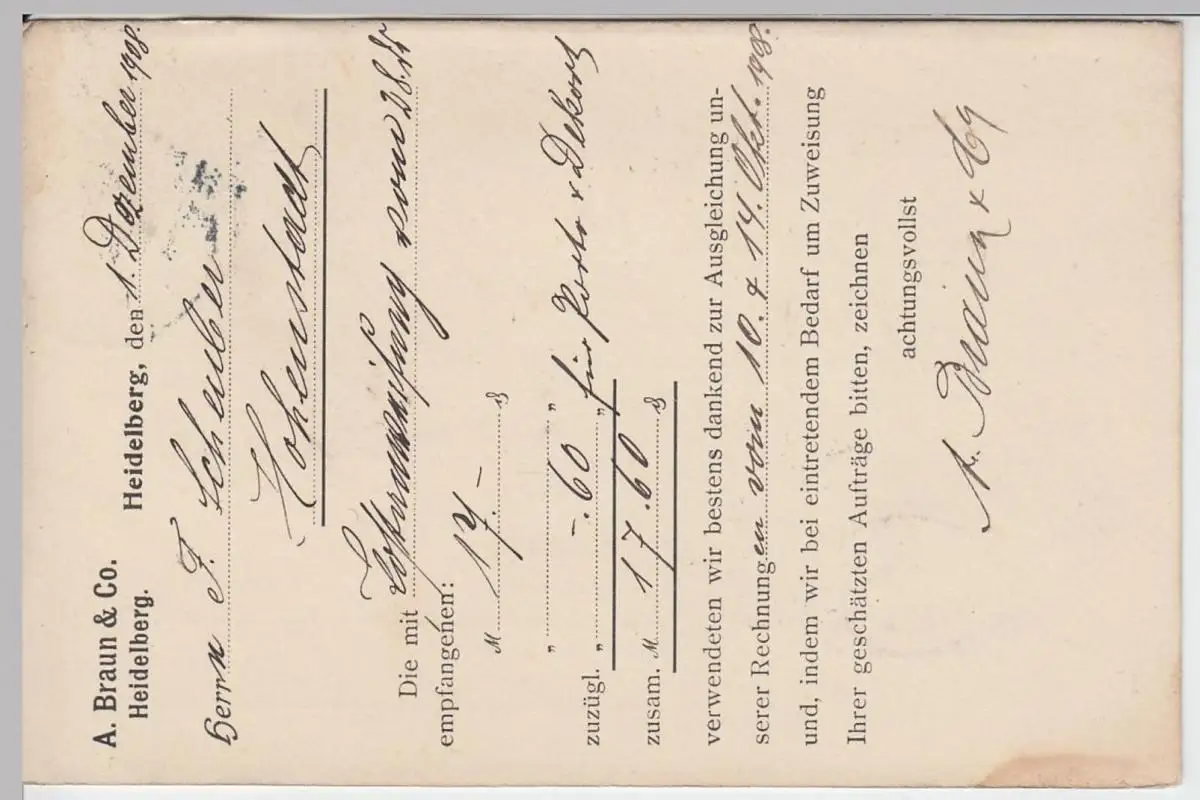 A. Braun & Co.
Heidelberg.
Heidelberg, den 1. Dezember 1908.
Herrn F. Scheuber
Hohenstadt
Die mit Postanweisung vom 28. ds
empfangenen:
M 17.— ₰
" "
zuzügl. " —.60 " für Porto & Dekort
zusam. M 17.60 ₰
verwendeten wir bestens dankend zur Ausgleichung un-
serer Rechnungen vom 10. & 14. Okt. 1908.
und, indem wir bei eintretendem Bedarf um Zuweisung
Ihrer geschätzten Aufträge bitten, zeichnen
achtungsvollst
A. Braun & Co